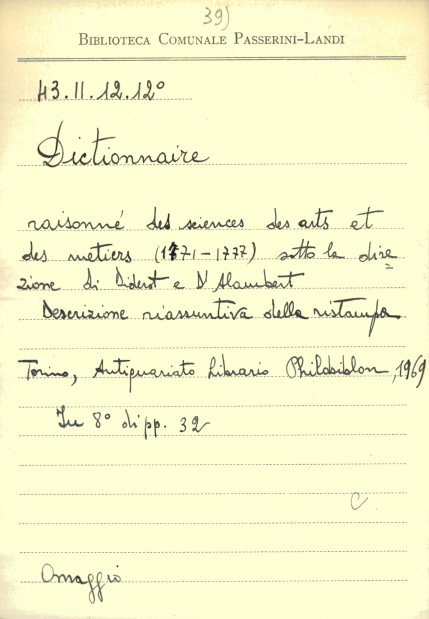 39)
BIBLIOTECA COMUNALE PASSERINI-LANDI
43.II.12.12°
Dictionnaire
raisonné des sciences des arts et
des metiers (1771-1777) sotto la dire
zione di Diderot e D'Alambert
Descrizione riassuntiva della ristampa
Torino, Antiquariato Librario Philobiblon, 1969
In 8° di pp. 32
C
Omaggio